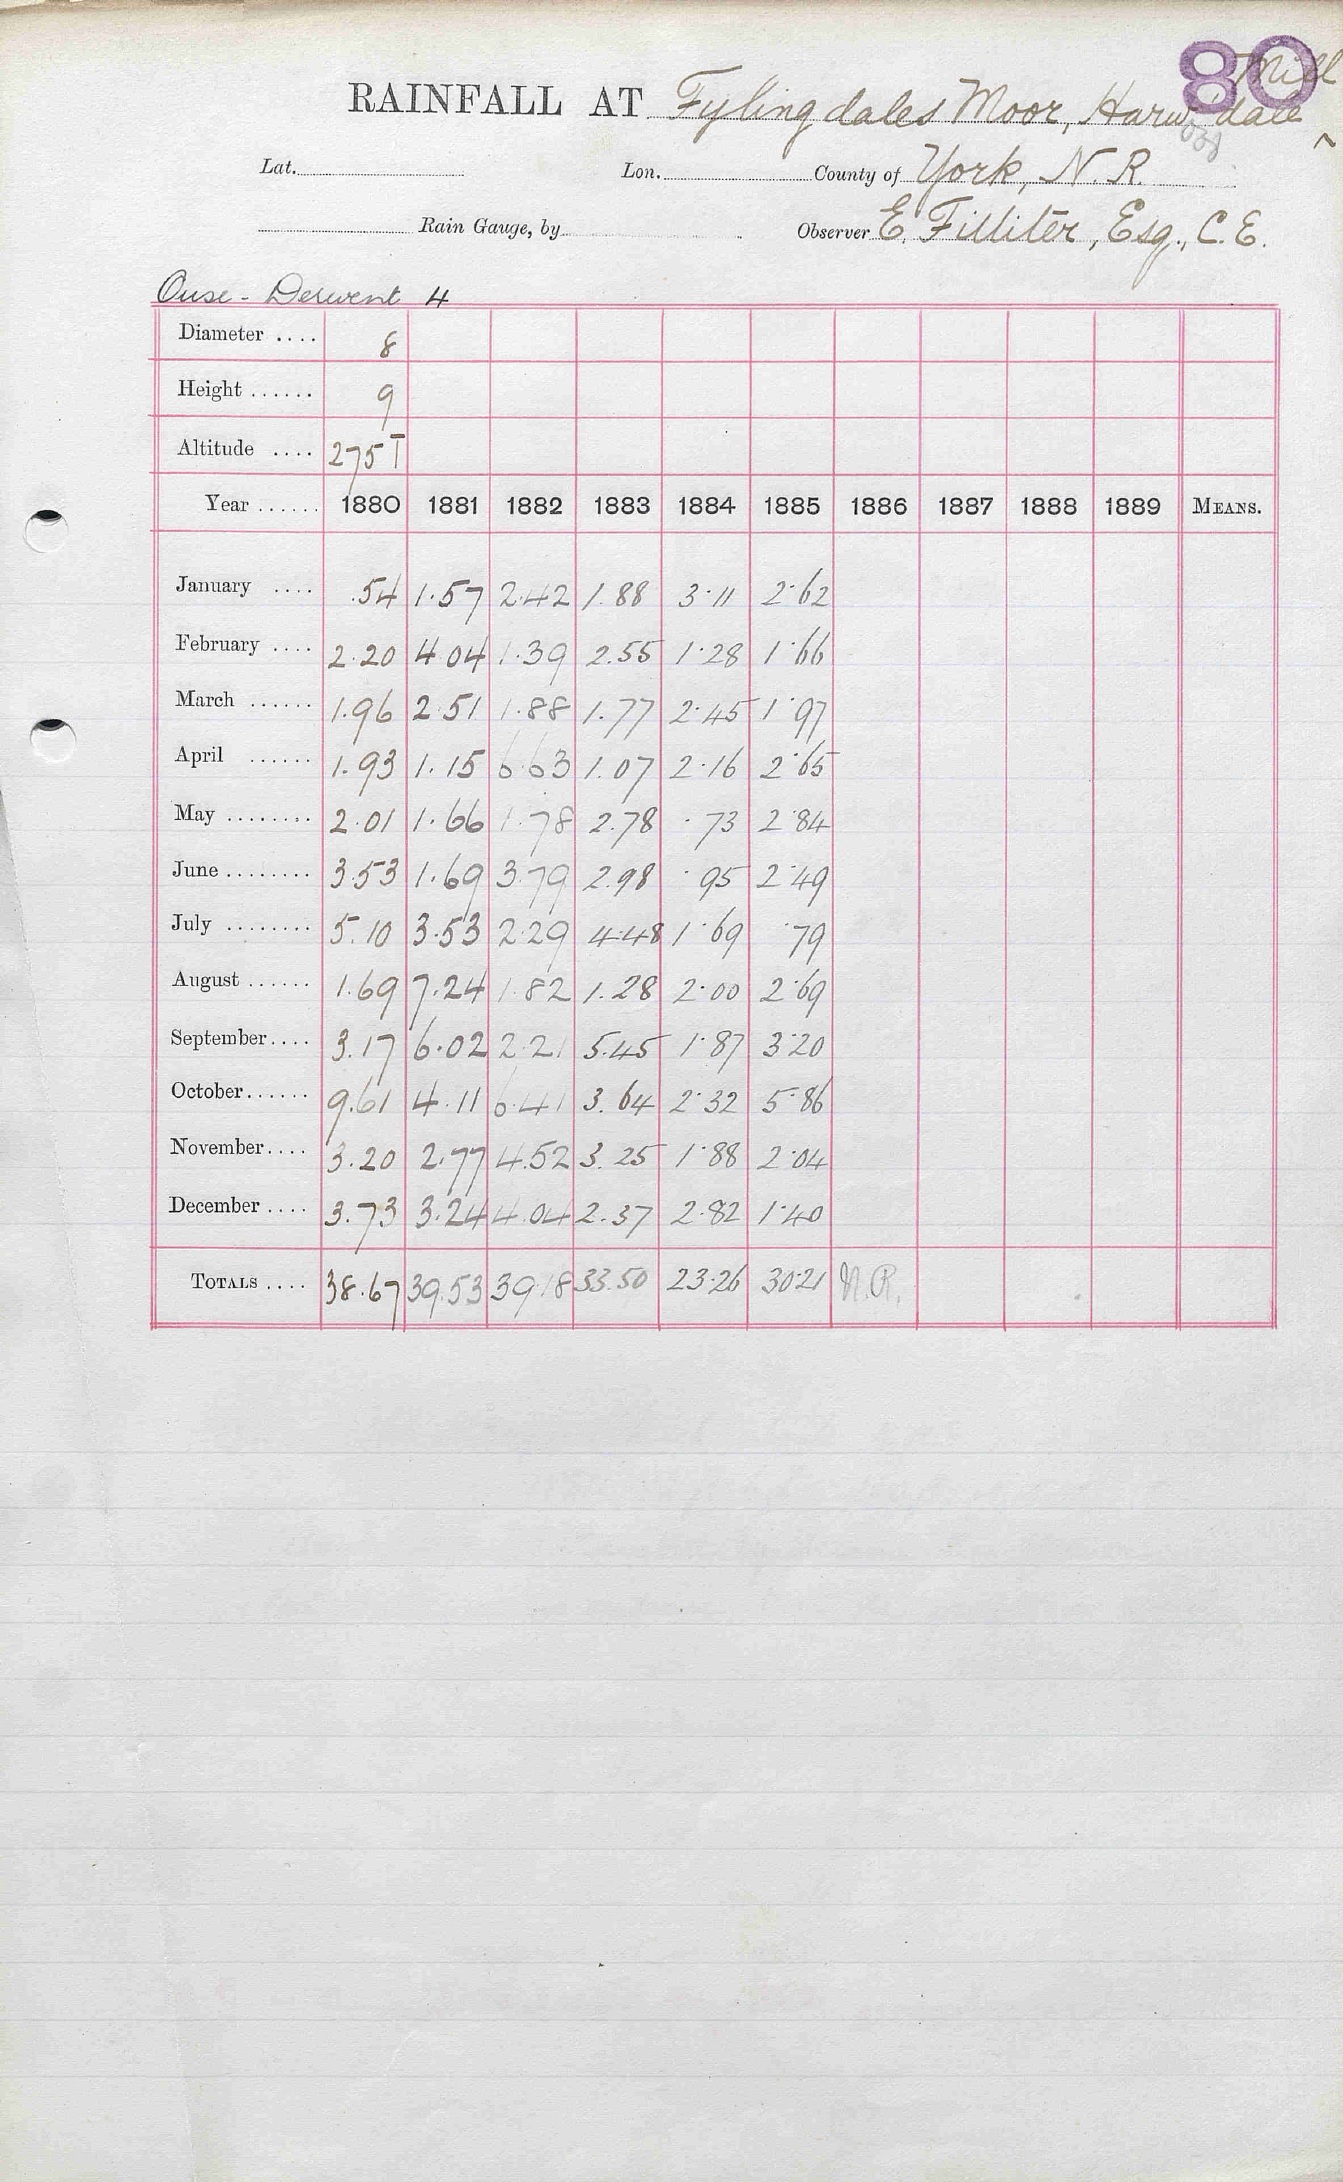 80
Mill
RAINFALL AT Fylingdales Moor, Harwdale
Lat. Lon. County of York, N. R.
Rain Gauge, by Observer E. Filliter, Esq., C. E.
Ouse - Derwent 4
Diameter .... 8
Height ...... 9
Altitude .... 275 T
Year ...... 1880 1881 1882 1883 1884 1885 1886 1887 1888 1889 MEANS.
January .... .54 1.57 2.42 1.88 3.11 2.62
February .... 2.20 4.04 1.39 2.55 1.28 1.66
March ...... 1.96 2.51 1.88 1.77 2.45 1.97
April ...... 1.93 1.15 6.63 1.07 2.16 2.65
May ........ 2.01 1.66 1.78 2.78 .73 2.84
June ........ 3.53 1.69 3.79 2.98 .95 2.49
July ........ 5.10 3.53 2.29 4.48 1.69 .79
August ...... 1.69 7.24 1.82 1.28 2.00 2.69
September.... 3.17 6.02 2.21 5.45 1.87 3.20
October...... 9.61 4.11 6.41 3.64 2.32 5.86
November.... 3.20 2.77 4.52 3.25 1.88 2.04
December .... 3.73 3.24 4.04 2.37 2.82 1.40
TOTALS .... 38.67 39.53 39.18 33.50 23.26 30.21 N.R.